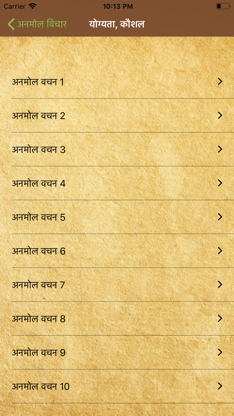 Carrier 10:13 PM
अनमोल विचार योग्यता, कौशल
अनमोल वचन 1
अनमोल वचन 2
अनमोल वचन 3
अनमोल वचन 4
अनमोल वचन 5
अनमोल वचन 6
अनमोल वचन 7
अनमोल वचन 8
अनमोल वचन 9
अनमोल वचन 10